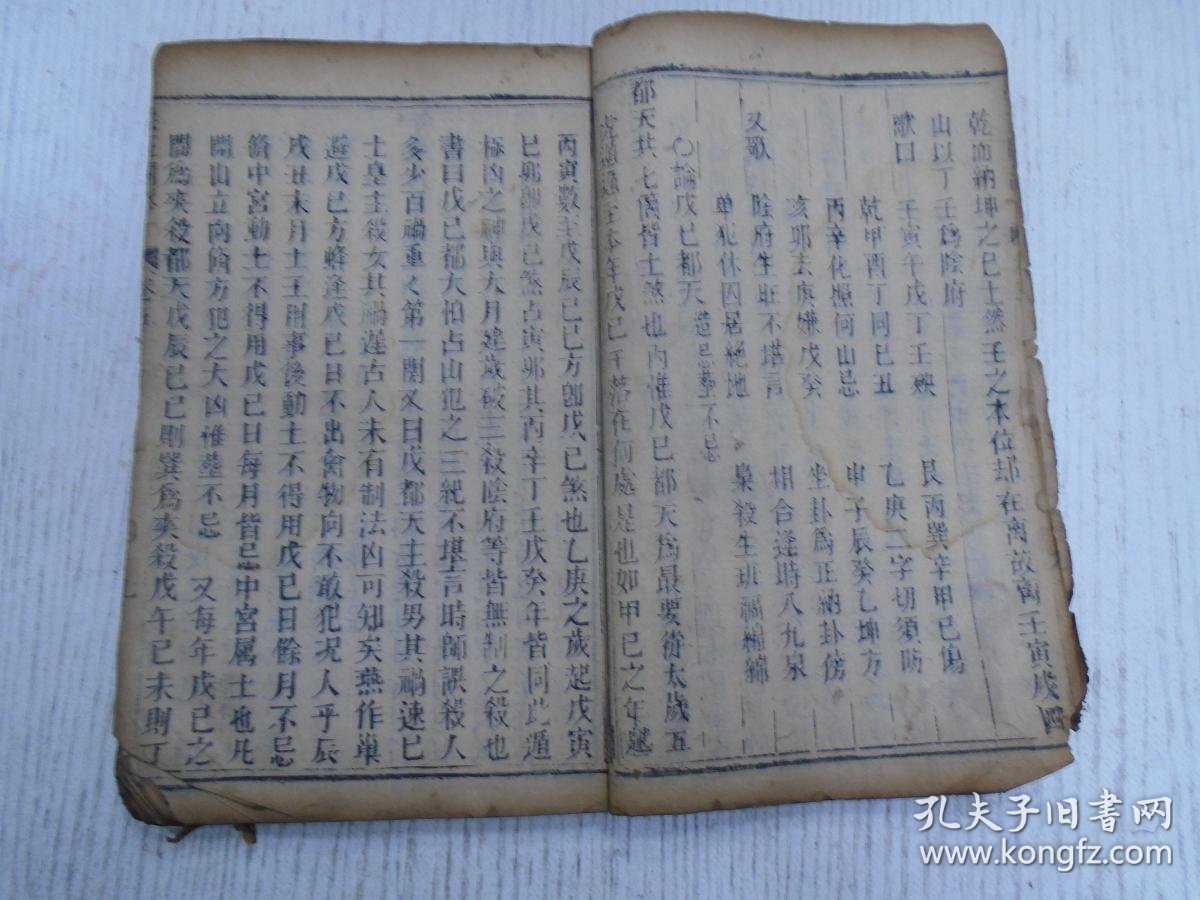 乾而納坤之巳土然壬之本位却在离故离壬寅戌四
山以丁壬爲陰府
歌曰 壬寅午戌丁壬殃 艮丙巽辛甲巳傷
乾甲酉丁同巳丑 乙庚二字切須防
丙辛化堀何山忌 申子辰癸乙坤方
亥卯未庚嫌戊癸 坐卦爲正納卦傍
又歌 陰府生旺不堪言 相合逢時入九泉
单犯休囚居絶地 梟殺生班禍綿綿
○論戊巳都天 造忌塟不忌
都天共七箇皆土煞也内惟戊巳都天爲最要從太歲五
虎遁遁至本年戊巳干落在何處是也如甲巳之年遁
丙寅數至戊辰巳巳方卽戊巳煞也乙庚之歲起戊寅
巳卯卽戊巳煞占寅卯其丙辛丁壬戊癸年皆同此遁
極凶之神與大月建歲破三殺陰府等皆無制之殺也
書曰戊巳都天怕占山犯之三紀不堪言時師誤殺人
多少百禍重〻第一関又曰戊都天主殺男其禍速巳
土皇主殺女其禍遲古人未有制法凶可知矣燕作巢
避戊巳方蜂逢戊巳日不出禽物向不敢犯况人乎辰
戌丑未月土王用事後動土不得用戊巳日餘月不忌
脩中宮動土不得用戊巳日每月皆忌中宮属土也凡
開山立向脩方犯之大凶惟塟不忌 又每年戊巳之
間爲夾殺都天戊辰巳巳則巽爲夾殺戊午巳未則丁
孔夫子旧书网
www.kongfz.com